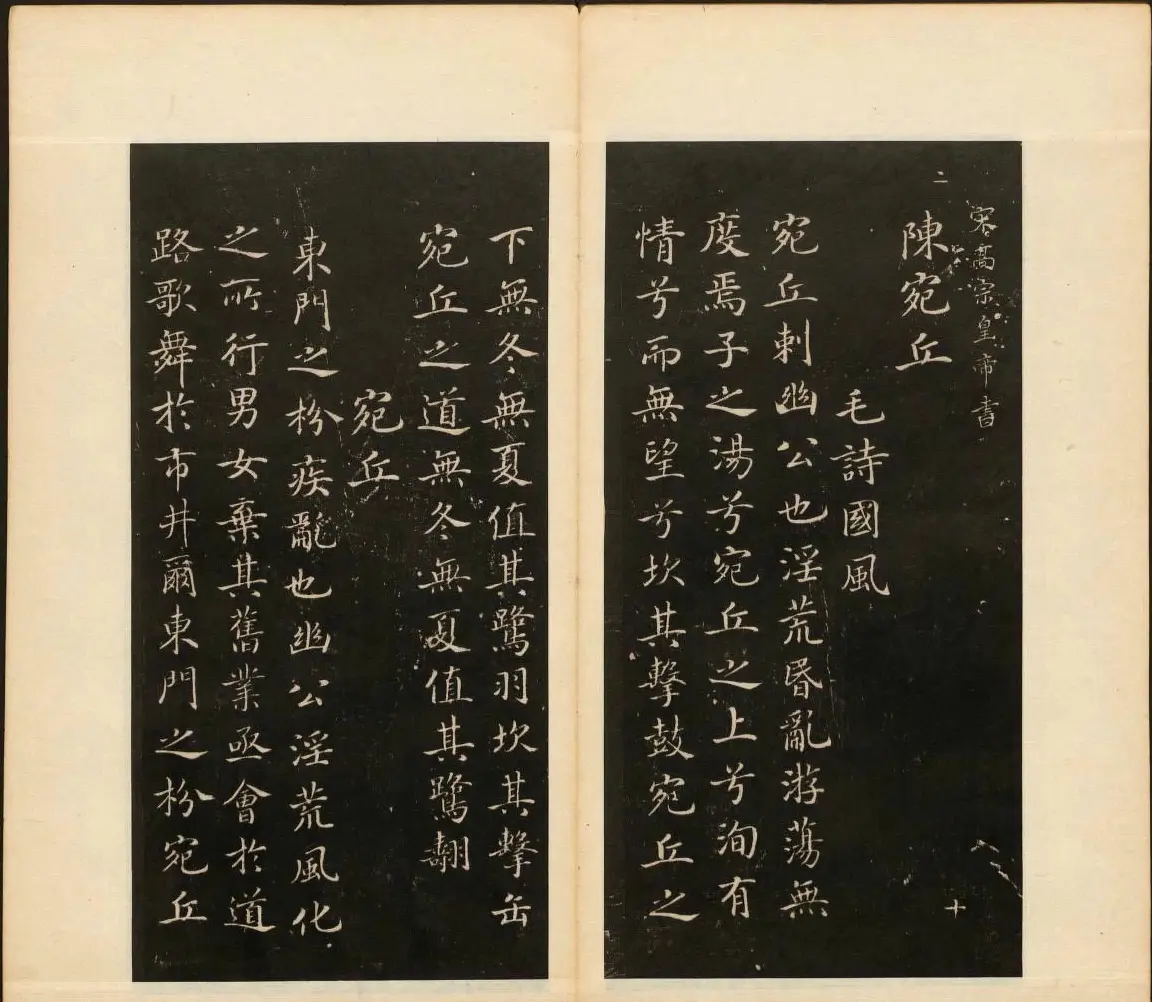 宋高宗皇帝書
二
十
陳宛丘
毛詩國風
宛丘刺幽公也淫荒昬亂游蕩無
度焉子之湯兮宛丘之上兮洵有
情兮而無望兮坎其擊鼓宛丘之
下無冬無夏值其鷺羽坎其擊缶
宛丘之道無冬無夏值其鷺翿
宛丘
東門之枌疾亂也幽公淫荒風化
之所行男女棄其舊業亟會於道
路歌舞於市井爾東門之枌宛丘